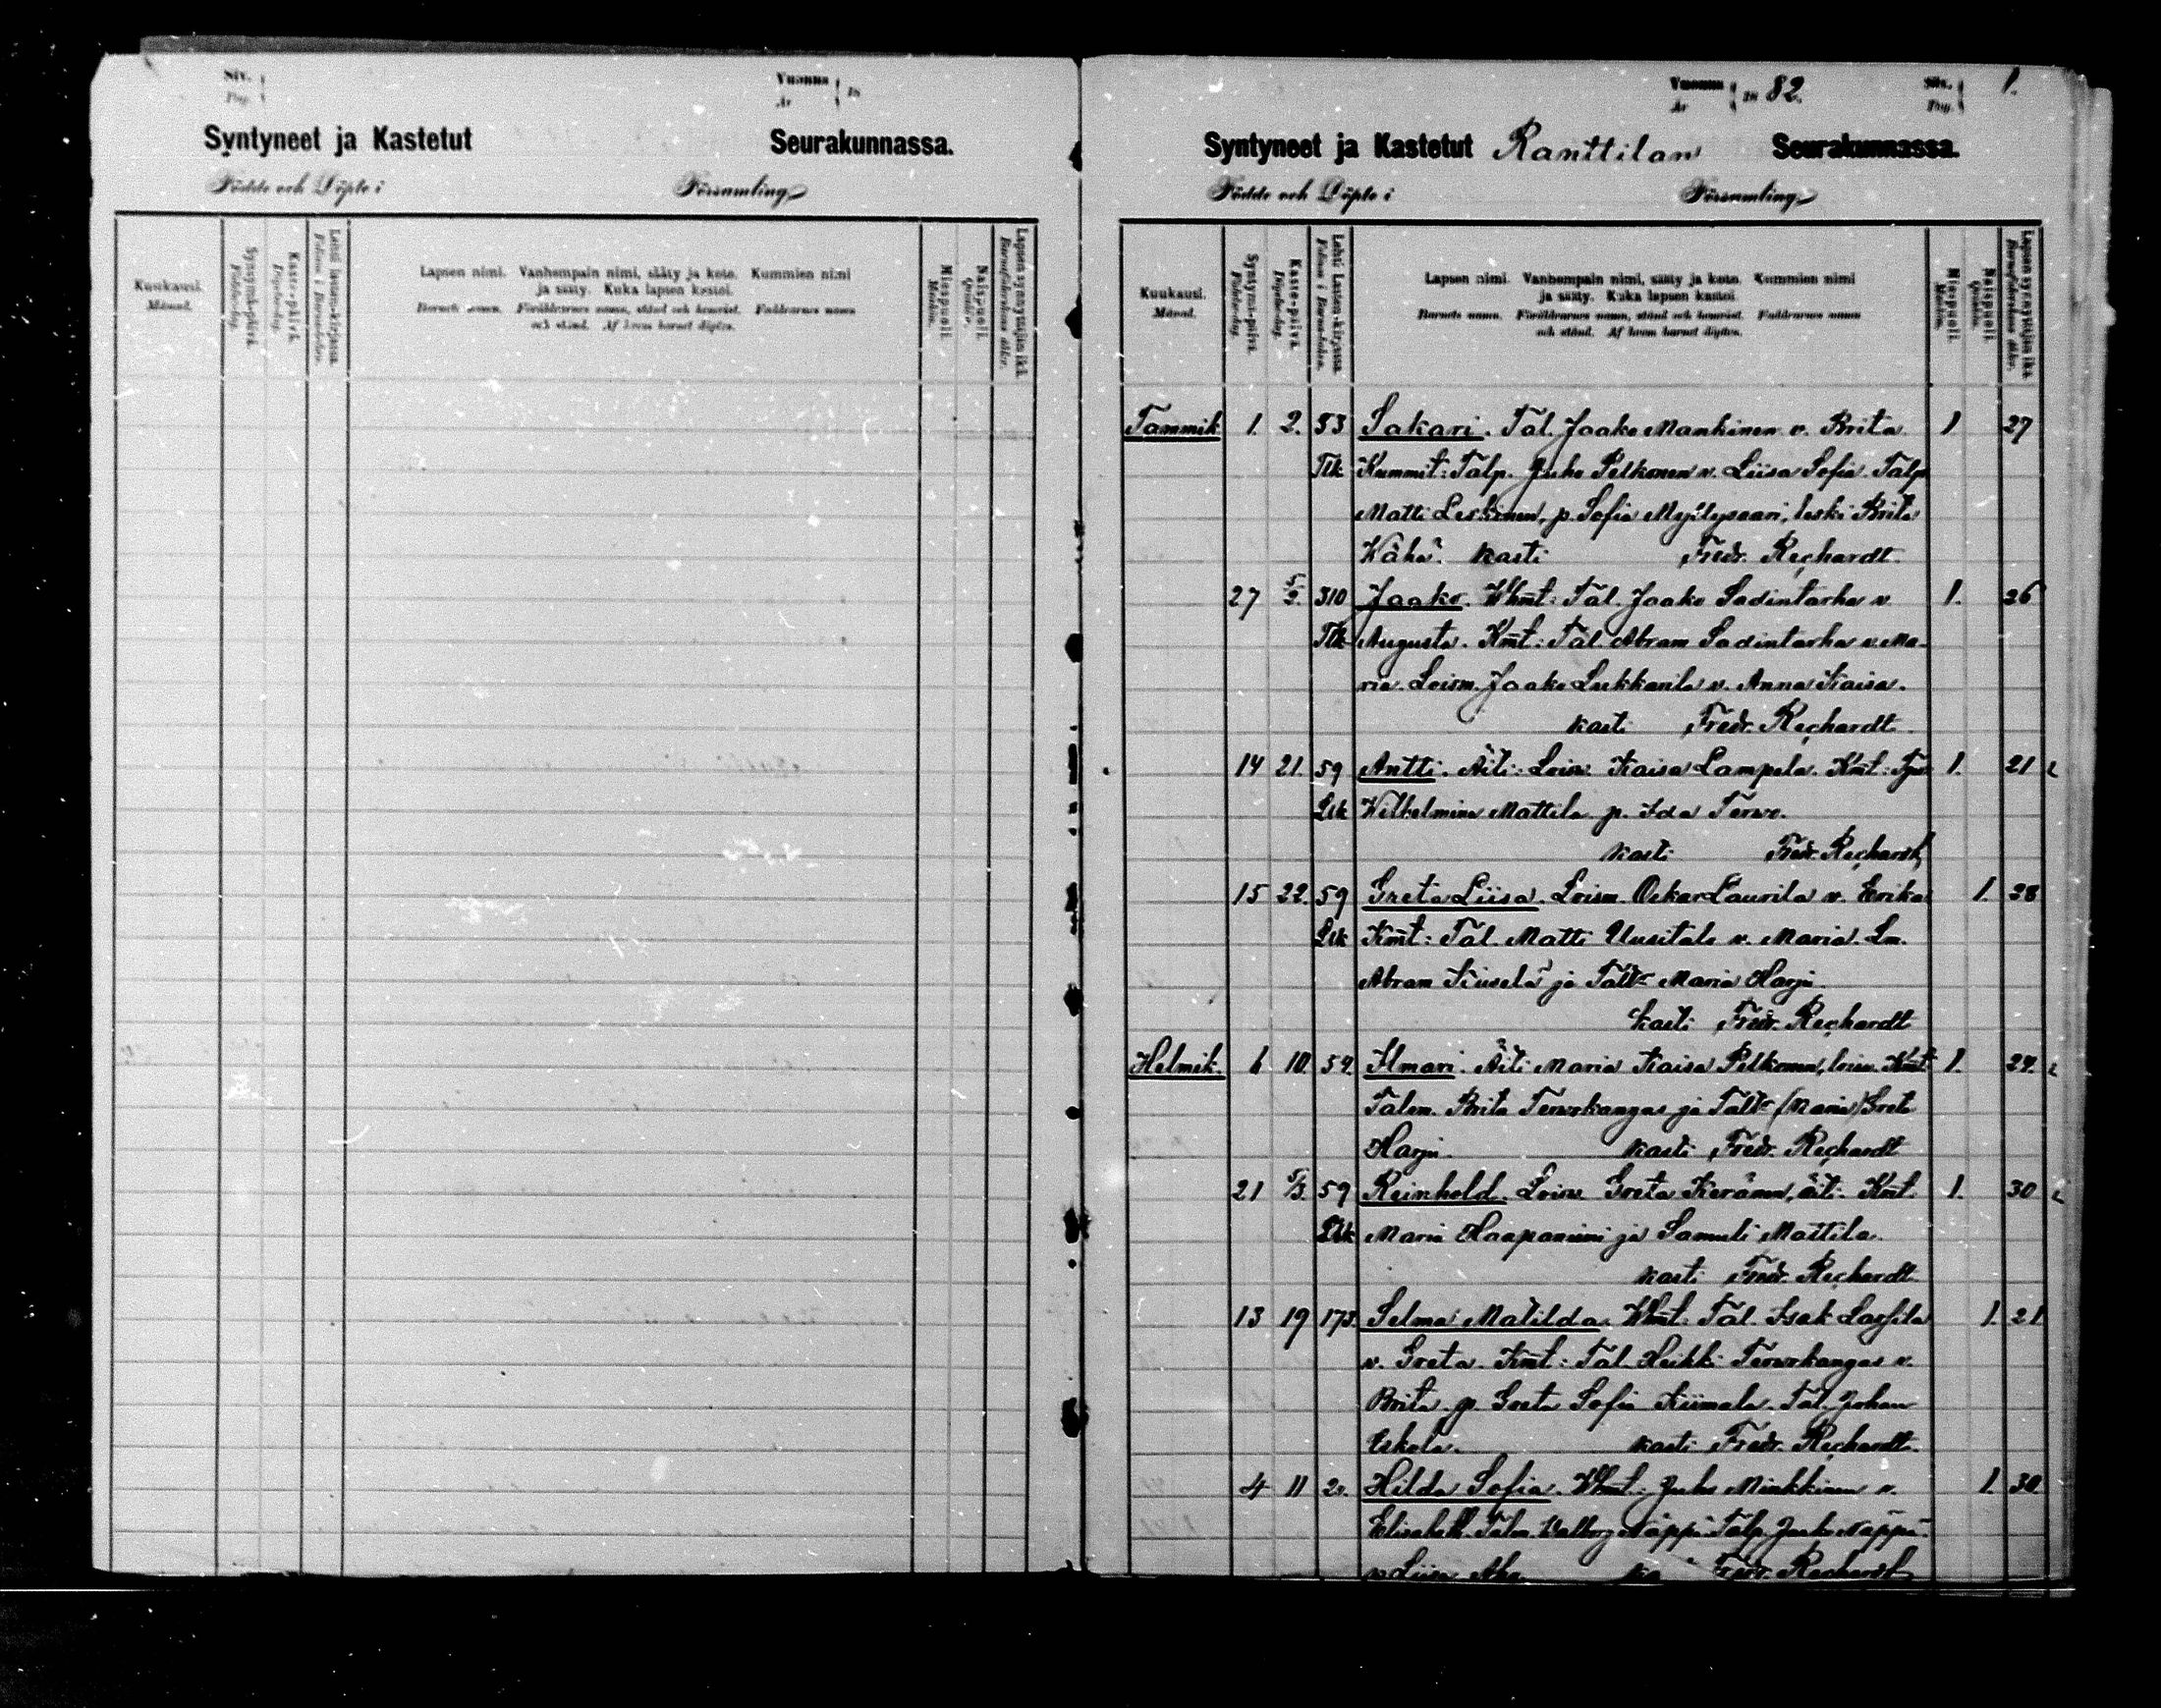 Siv. Pag.
Vuonna År 18
Syntyneet ja Kastetut Seurakunnassa.
Födde och Döpte i Församling
Kuukausi. Månad.
Syntymä-päivä. Födelse-dag.
Kaste-päivä. Döpelse-dag.
Lapsen nimi. Vanhempain nimi, sääty ja koto. Kummien nimi
ja sääty. Kuka lapsen kastoi.
Barnets namn. Föräldrarnes namn, stånd och hemvist. Faddrarnes namn
och stånd. Af hvem barnet döptes.
Miespuoli. Mankön.
Naispuoli. Qvinkön.
Lapsen synnyttäjän ikä. Barnaföderskans ålder.
Vuonna År 1882. Siv. Pag. 1.
Syntyneet ja Kastetut Ranttilan Seurakunnassa.
Födde och Döpte i Församling
Kuukausi. Månad.
Syntymä-päivä. Födelse-dag.
Kaste-päivä. Döpelse-dag.
Lehti Lasten-kirjassa.
Lapsen nimi. Vanhempain nimi, sääty ja koto. Kummien nimi
ja sääty. Kuka lapsen kastoi.
Barnets namn. Föräldrarnes namn, stånd och hemvist. Faddrarnes namn
och stånd. Af hvem barnet döptes.
Miespuoli. Mankön.
Naispuoli. Qvinkön.
Lapsen synnyttäjän ikä. Barnaföderskans ålder.
Tammik. 1. 2. 53 Sakari. Tal. Jaako Mankinen v. Brita 1 27
Tlk Kummit: Talp. Juho Pelkonen v. Liisa Sofia. Talp
Matti Leskinen, p. Sofia Myllysaari, leski Brita
Kähä. kasti Fredr. Rechardt.
27 5/2. 310 Jaako. Whmt: Tal. Jaako Sadintarha v. 1. 26
Tlk Augusta. Kmt: Tal. Abram Sadintarha v. Ma-
ria. Loism. Jaako Lukkarila v. Anna Kaisa.
kasti Fredr. Rechardt.
14 21. 59 Antti. Äiti: Loisn. Kaisa Lampela. Kmt: 1. 21
Llk Wilhelmina Mattila p. Ida Terwo.
kasti Fredr. Rechardt
15 22. 59 Greta Liisa. Loism. Oskar Laurila v. Erika 1. 28
Llk Kmt: Tal. Matti Uusitalo v. Maria. Lm.
Abram Kiuselä ja Maria Harju.
kasti Fredr. Rechardt
Helmik. 6 10 54. Ilmari. Äiti Maria Kaisa Pelkonen, loisn. Kmt: 1. 24.
Talon. Brita Terwokangas ja (Maria) Greta
Harju. kasti Fredr. Rechardt
21 5/3. 59 Reinhold. Loisn Greta Keränen, äiti. Kmt. 1. 30
Llk Maria Haapaniemi ja Samuli Mattila.
kasti Fredr. Rechardt.
13 19 173. Selma Matilda. Whmt: Tal. Isak Lassila 1. 21
v. Greta. Kmt: Tal. Heikki Terwokangas v.
Brita. p. Greta Sofia Kiimala. Tal. Johan
Eskola. kasti Fredr. Rechardt.
4 11 Hilda Sofia. Whmt: Juho Minkkinen v. 1. 30
Elisabeth. Walborg Näppä Talp. Juho Näppä
v. Liisa Aho ka Fredr. Rechardt